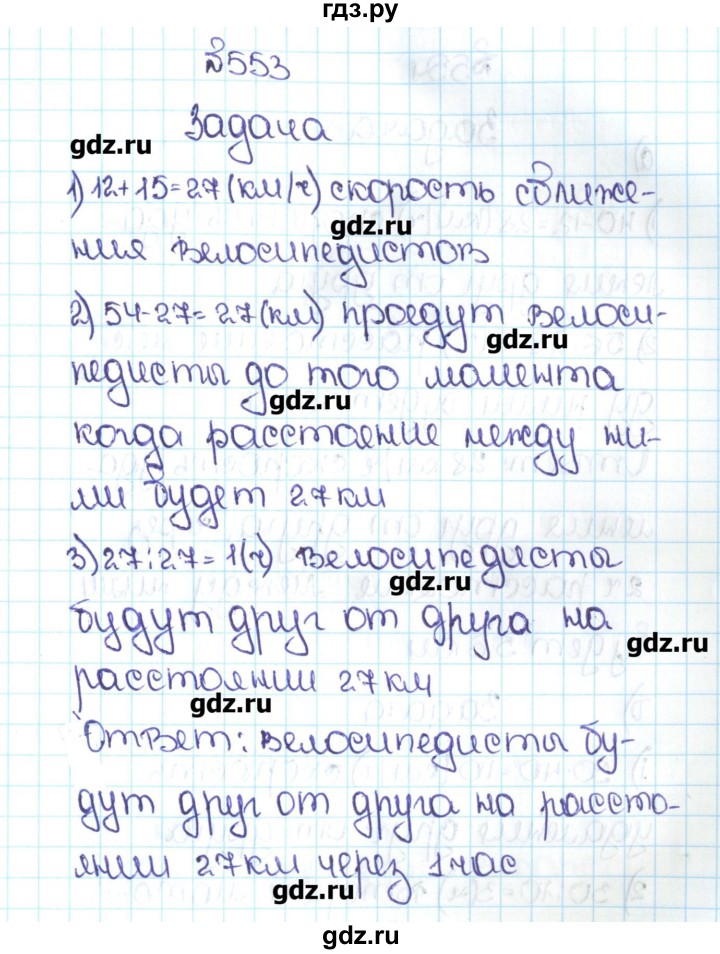 гдз.ру
№553
Задача
gdz.ru
1) 12+15=27(км/ч) скорость сближе-
gdz.ru
ния велосипедистов
2) 54-27=27(км) проедут велоси-
gdz.ru
педисты до того момента
gdz.ru
когда расстояние между ни-
ми будет 27км
3) 27:27=1(ч) велосипедисты
gdz.ru
будут друг от друга на
gdz.ru
расстоянии 27км
gdz.ru
Ответ: велосипедисты бу-
дут друг от друга на рассто-
янии 27км через 1час
gdz.ru
gdz.ru